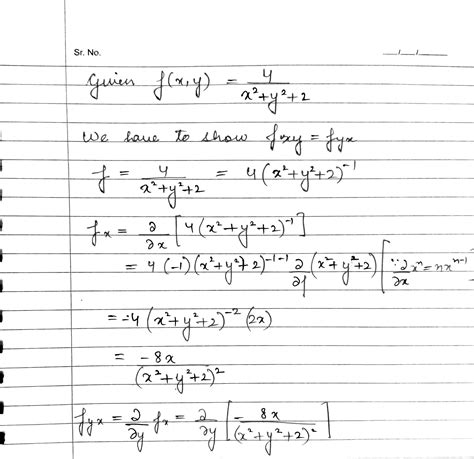 Sr. No.
Given f(x,y) = 4/(x²+y²+2)
We have to show fxy = fyx
f = 4/(x²+y²+2) = 4(x²+y²+2)⁻¹
fx = ∂/∂x [4(x²+y²+2)⁻¹]
= 4(-1)(x²+y²+2)⁻¹⁻¹ ∂/∂f (x²+y²+2) [∵ ∂/∂x xⁿ = nxⁿ⁻¹
= -4(x²+y²+2)⁻² (2x)
= -8x/(x²+y²+2)²
fyx = ∂/∂y fx = ∂/∂y [-8x/(x²+y²+2)²]